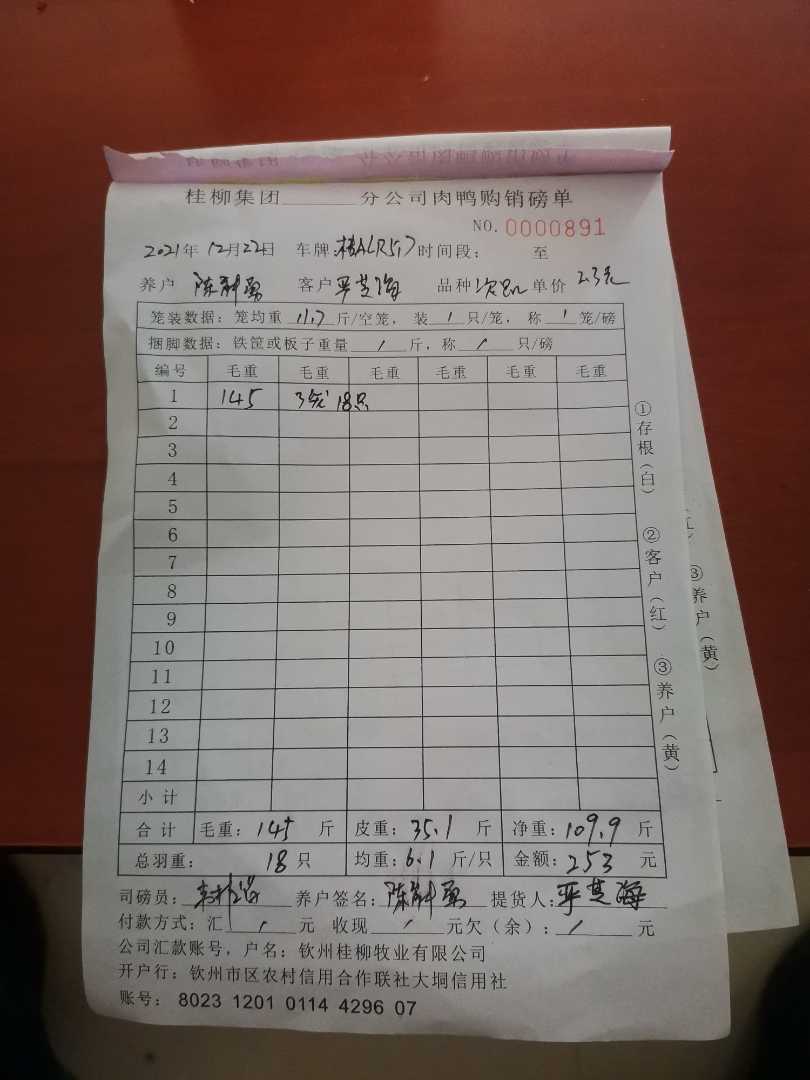 桂柳集团______分公司肉鸭购销磅单
NO. 0000891
2021年 12月22日 车牌: 桂ALR517 时间段: 至
养户 陈 勇 客户 海 品种 单价 2.3元
笼装数据: 笼均重 11.7 斤/空笼, 装 / 只/笼, 称 / 笼/磅
捆脚数据: 铁筐或板子重量 / 斤, 称 / 只/磅
编号 毛重 毛重 毛重 毛重 毛重 毛重
1 145 3笼 18只
2
3
4
5
6
7
8
9
10
11
12
13
14
小计
合计 毛重: 145 斤 皮重: 35.1 斤 净重: 109.9 斤
总羽重: 18 只 均重: 6.1 斤/只 金额: 253 元
司磅员: 养户签名: 陈 勇 提货人: 海
付款方式: 汇 / 元 收现 / 元欠(余): / 元
公司汇款账号, 户名: 钦州桂柳牧业有限公司
开户行: 钦州市区农村信用合作联社大垌信用社
账号: 8023 1201 0114 4296 07
①存根(白)
②客户(红)
③养户(黄)
红)
③养户(黄)